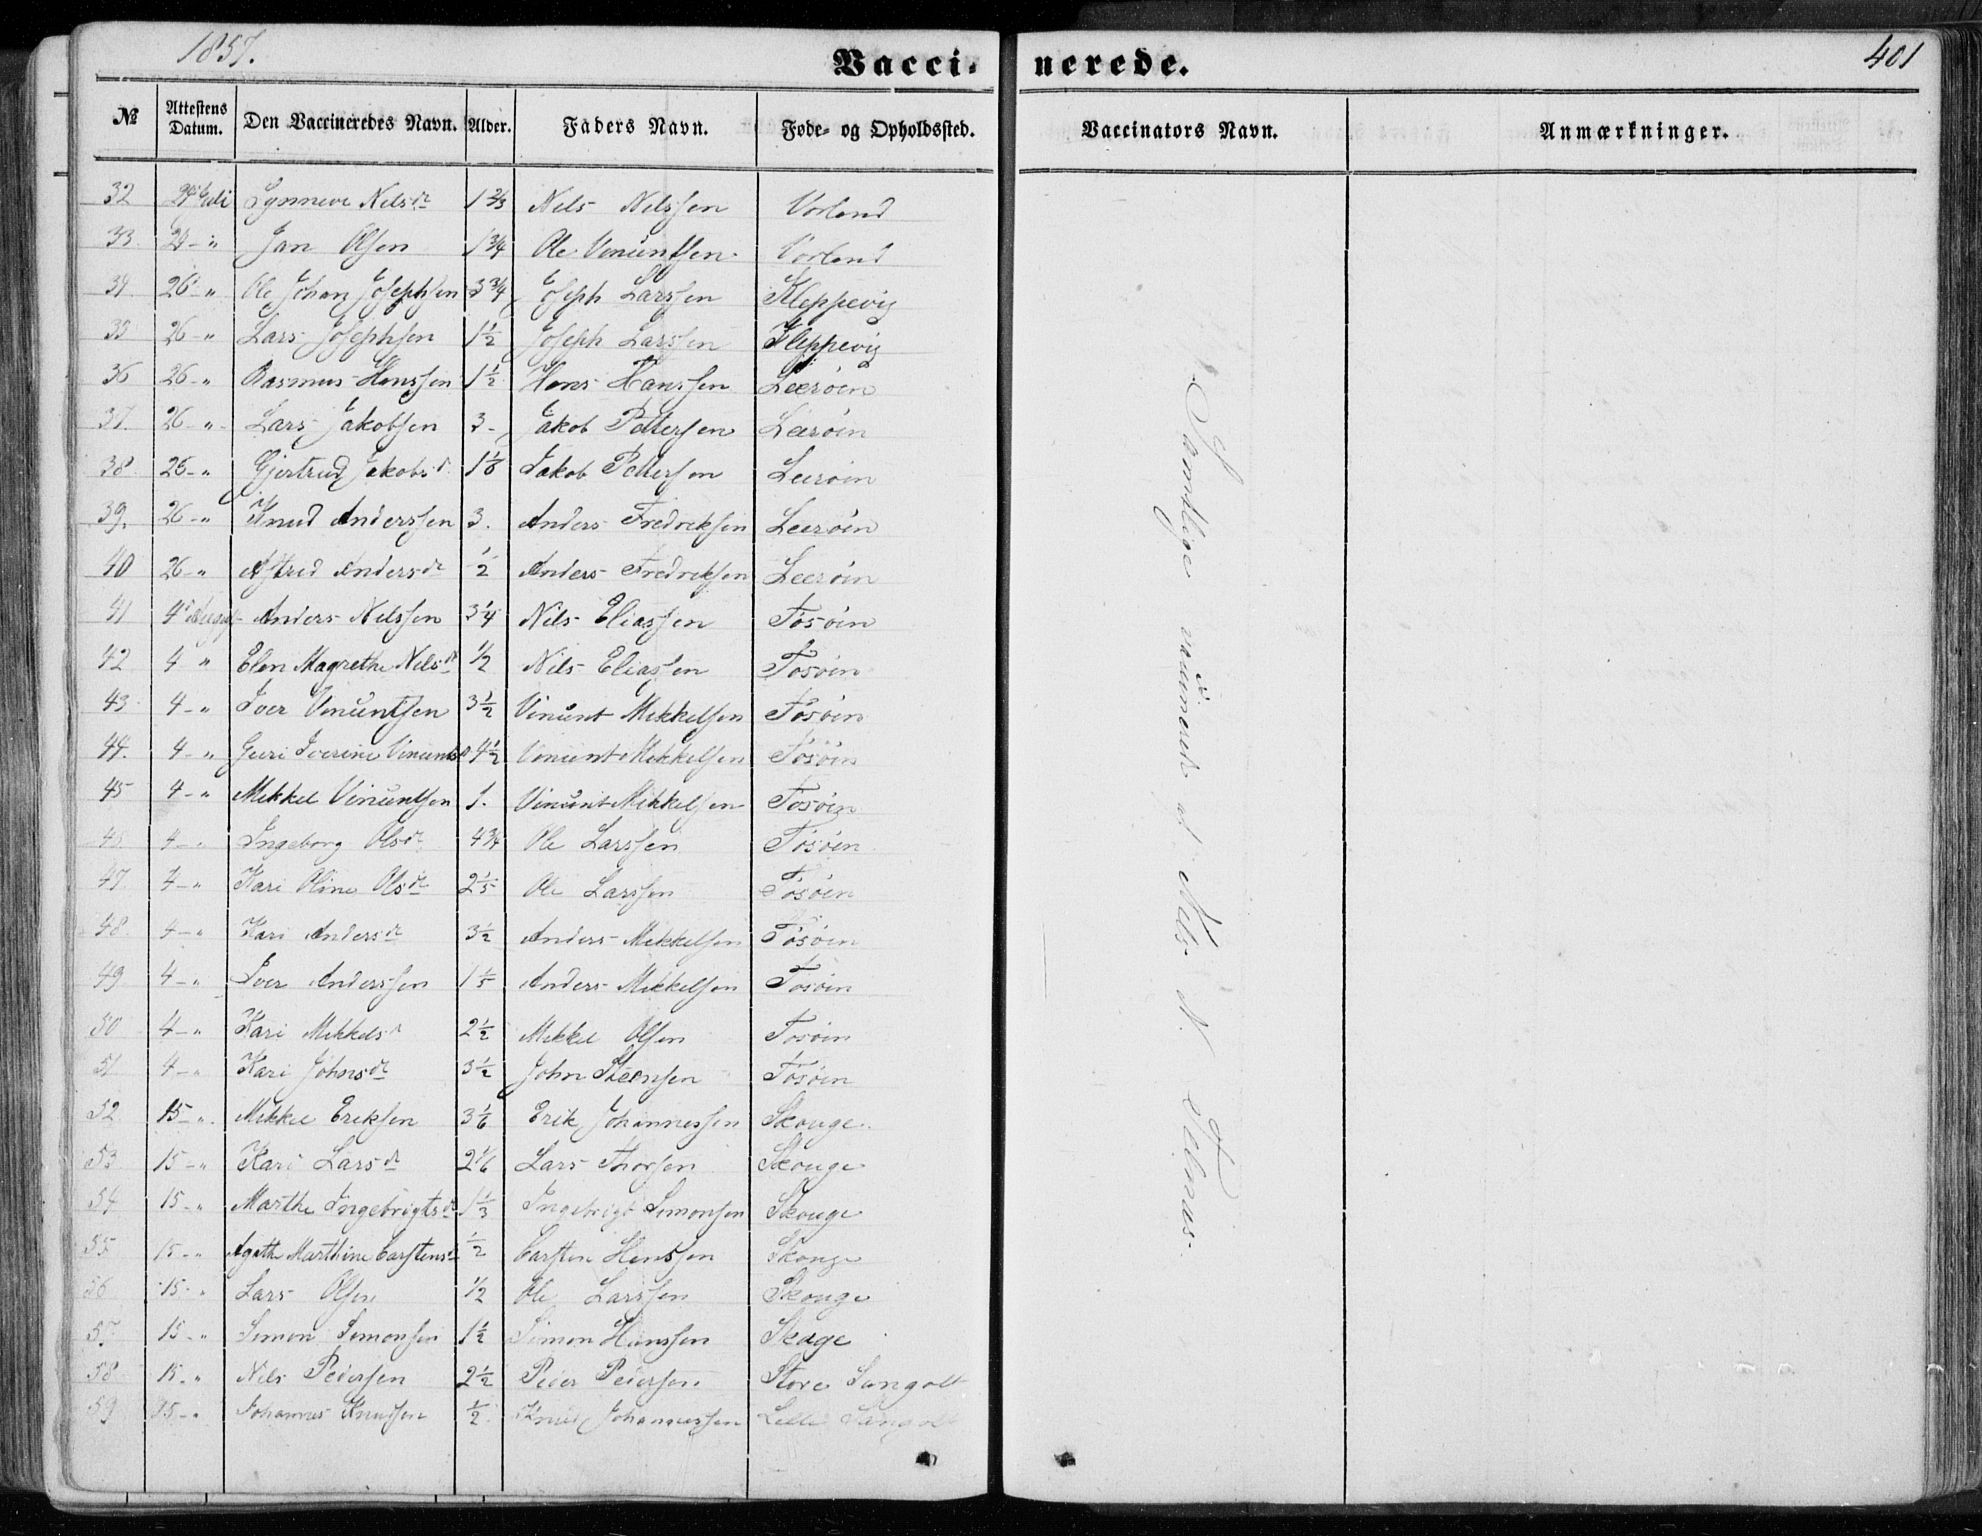 1857. Vaccinerede. 401
№ Attestens Datum. Den Vaccineredes Navn. Alder. Faders Navn. Føde- og Opholdssted. Vaccinators Navn. Anmærkninger.
32 Synneve Nilsdr 1 2/3 Nils Nilssen Vorland
33 Jan Olsen 1 3/4 Ole Vincentsen Vorland
34 26 " Ole Johan Josephsen 3 3/4 Joseph Larssen Kleppevig
35 26 " Lars Josephsen 1 1/2 Joseph Larssen Kleppevig
36 26 " Rasmus Hanssen 1 1/2 Hans Hanssen Leerøen
37. 26 " Lars Jakobsen 3 Jakob Pettersen Leerøen
38 26 " Gjertrud Jakobsd. Jakob Pettersen Leerøen
39. 26 " Knud Anderssen 3. Anders Fredriksen Leerøen
40 26 " Astrid Andersdr 1/2 Anders Fredriksen Leerøen
41 4 August Anders Nilssen 3 1/4 Nils Eliassen Tosøen
42 4 " Elen Magrethe Nilsdr 1/2 Nils Eliassen Tosøen
43 4 " Iver Vincentsen 3 1/2 Vincent Mikkelsen Tosøen
44. 4 " Iverine Vincents 4 1/2 Vincent Mikkelsen Tosøen
45 4 " Mikkel Vincentsen 1. Vincent Mikkelsen Tosøen
46 4 " Ingeborg Olsdr 4 3/4 Ole Larssen Tosøen
47. 4 " Kari Oline Olsdr 2 1/5 Ole Larssen Tosøen
48 4 " Kari Andersdr 3 1/2 Anders Mikkelsen Tosøen
49 4 " Iver Anderssen 1 1/5 Anders Mikkelsen Tosøen
50 4 " Kari Mikkelsd 2 1/2 Mikkel Olsen Tosøen
51 4 " Kari Johnsdr 3 1/2 John Steensen Tosøen
52 15 " Mikkel Eriksen 3 1/6 Erik Johannessen Skouge
53 15 " Kari Larsdr 2 1/6 Lars Thorsen Skouge
54 15 " Marthe Ingebrigtsdr 1 1/3 Ingebrigt Simonsen Skouge
55 15 " Agathe Marthine Carstensdr 1/2 Carsten Hanssen Skouge
56 15 " Lars Olsen 1/2 Ole Larssen Skouge
57. 15 " Simon Simonsen 1 1/2 Simon Hanssen Skage
58 15 " Nils Pedersen 2 1/2 Peder Pedersen Store Sangolt
59 15 " Johannes Knudsen 1/2 Knud Johannessen Lille Sangolt
Samtlige vaccineret af Nils N. Telnes.